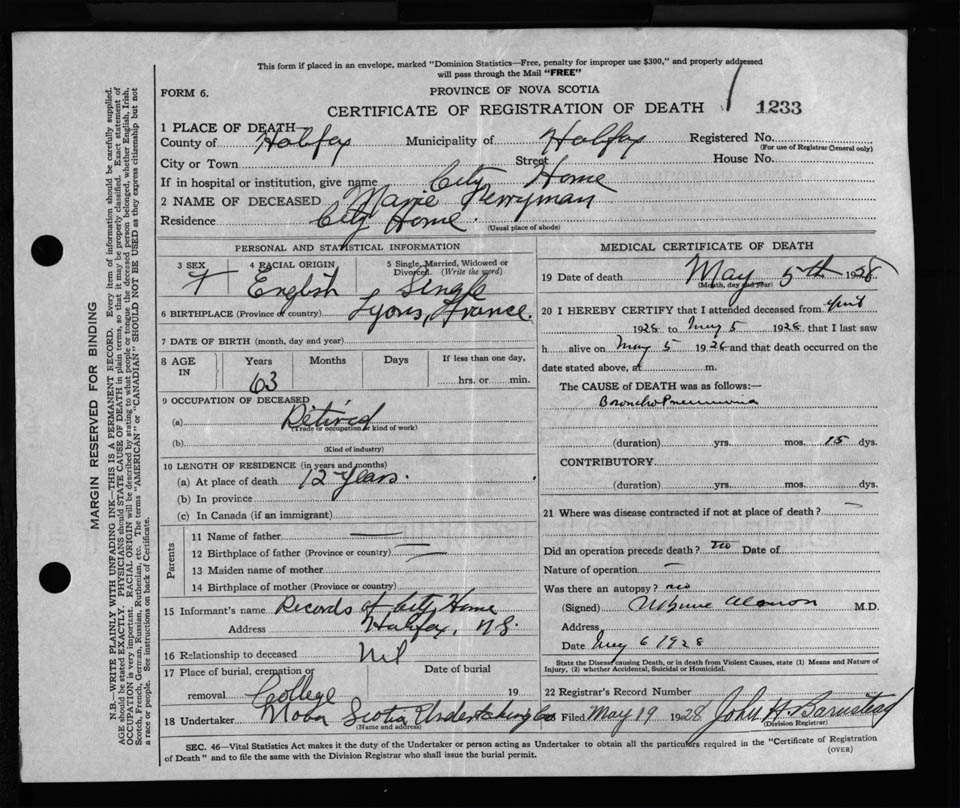 This form if placed in an envelope, marked "Dominion Statistics—Free, penalty for improper use $300," and properly addressed
will pass through the Mail "FREE"
FORM 6.
PROVINCE OF NOVA SCOTIA
CERTIFICATE OF REGISTRATION OF DEATH 1233
1 PLACE OF DEATH—
County of Halifax Municipality of Halifax Registered No.
(For use of Registrar General only)
City or Town Street House No.
If in hospital or institution, give name City Home
2 NAME OF DECEASED Marie Perryman
Residence City Home
(Usual place of abode)
PERSONAL AND STATISTICAL INFORMATION
3 SEX 4 RACIAL ORIGIN 5 Single, Married, Widowed or Divorced. (Write the word)
F English Single
6 BIRTHPLACE (Province or country) Lyons, France.
7 DATE OF BIRTH (month, day and year)
8 AGE IN Years Months Days If less than one day,
63 hrs. or min.
9 OCCUPATION OF DECEASED
(a) Retired
(Trade or occupation or kind of work)
(b)
(Kind of industry)
10 LENGTH OF RESIDENCE (in years and months)
(a) At place of death 12 years.
(b) In province
(c) In Canada (if an immigrant)
Parents
11 Name of father —
12 Birthplace of father (Province or country) —
13 Maiden name of mother
14 Birthplace of mother (Province or country)
15 Informant's name Records of City Home
Address Halifax, N.S.
16 Relationship to deceased Nil
17 Place of burial, cremation or Date of burial
removal College 19
18 Undertaker Nova Scotia Undertaking Co
(Name and address)
MEDICAL CERTIFICATE OF DEATH
19 Date of death May 5th 1928
(Month, day and year)
20 I HEREBY CERTIFY that I attended deceased from April
1928 to May 5 1928 that I last saw
h alive on May 5 1928 and that death occurred on the
date stated above, at m.
The CAUSE of DEATH was as follows:—
Broncho Pneumonia
(duration) yrs. mos. 15 dys.
CONTRIBUTORY
(duration) yrs. mos. dys.
21 Where was disease contracted if not at place of death? —
Did an operation precede death? no Date of
Nature of operation —
Was there an autopsy? no
(Signed) Almon M.D.
Address
Date May 6 1928
State the Disease causing Death, or in death from Violent Causes, state (1) Means and Nature of
Injury, (2) whether Accidental, Suicidal or Homicidal.
22 Registrar's Record Number
Filed May 19 1928 John H Barnstead
(Division Registrar)
SEC. 46—Vital Statistics Act makes it the duty of the Undertaker or person acting as Undertaker to obtain all the particulars required in the "Certificate of Registration
of Death" and to file the same with the Division Registrar who shall issue the burial permit.
(OVER)
MARGIN RESERVED FOR BINDING
N.B.—WRITE PLAINLY WITH UNFADING INK—THIS IS A PERMANENT RECORD. Every item of information should be carefully supplied.
AGE should be stated EXACTLY. PHYSICIANS should STATE CAUSE OF DEATH in plain terms, so that it may be properly classified. Exact statement of
OCCUPATION is very important. RACIAL ORIGIN will be described by stating to what people or tongue the deceased person belonged, whether English, Irish,
Scotch, French, German, Russian, Ruthenian, etc. The terms "AMERICAN" or "CANADIAN" SHOULD NOT BE USED as they express citizenship but not
a race or people. See instructions on back of Certificate.